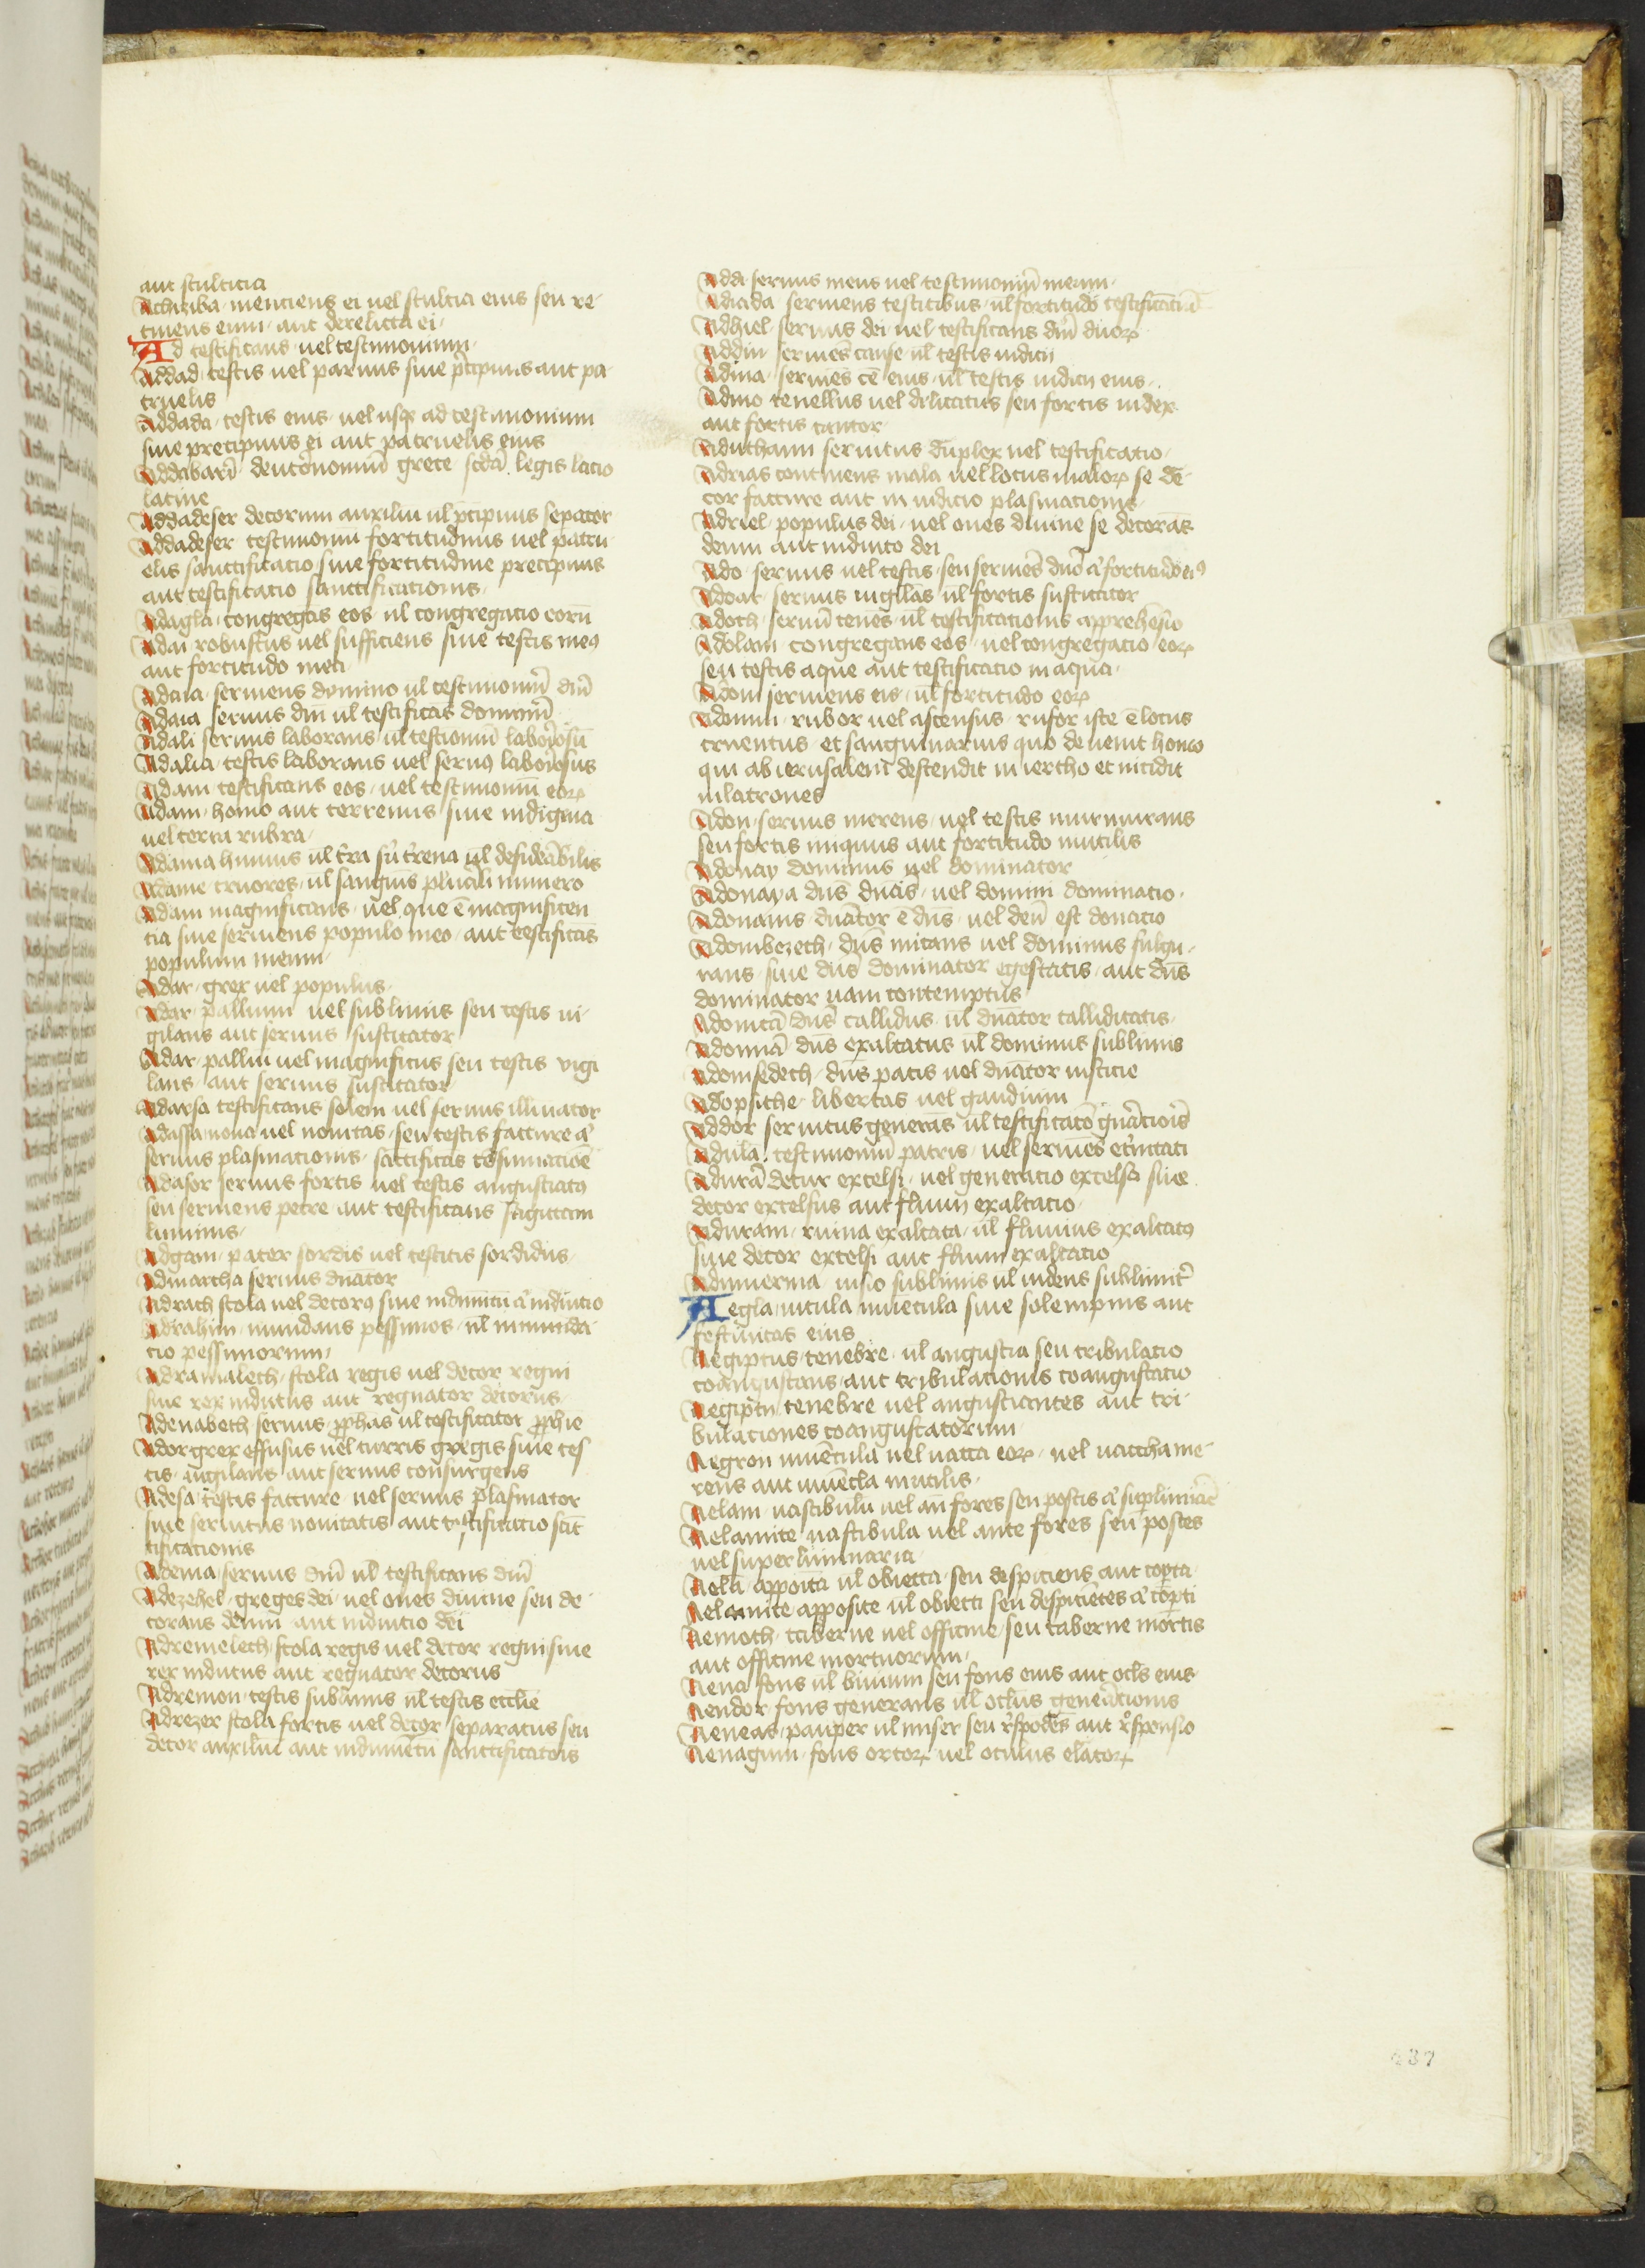 aut stulticia
Achziba mentiens ei uel stulticia eius seu re-
tinens eum aut derelicta ei
Ad testificans uel testimonium
Addad testis uel paruus siue p̄cipuus aut pa-
truelis
Addada testis eius uel usq̨ ad testimonium
siue precipuus ei aut patruelis eius
Addabarī deutronomiū grece scdā legis latio
latine
Addadeser decorum auxiliū ul p̄cipuus sepator
Addadeser testimoniū fortitudinis uel patru-
elis sanctificatio siue fortitudine precipuus
aut testificatio sanctificationis
Adagla congregās eos ul congregatio eorū
Adai robustus uel sufficiens siue testis meꝰ
aut fortitudo mea
Adaia seruiens domino ul testimoniū dn̄i
Adaia seruus dn̄i ul testificās dominū
Adali seruus laborans ul testioniū laboriosū
Adalia testis laborans uel seruꝰ laboriosus
Adam testificans eos uel testimoniū eoꝝ
Adam homo aut terrenus siue indigina
uel terra rubra
Adama humus ul tr̄a sū tr̄ena ul desideābilis
Adame cruores ul sanguīs plurali numero
Adam magnificans uel que ē magnificen-
tia siue seruiens populo meo aut testificās
populum meum
Adar grex uel populus
Adar pallium uel sublimis seu testis ui-
gilans aut seruus suscitator
Adar palliū uel magnificus seu testis vigi
lans aut seruus suscitator
Adarsa testificans solem uel seruus illuīator
Adassa noua uel nouitas seu testis facture aͭ
seruus plasmationis
Adasor seruus fortis uel testis angustiatꝰ
seu seruiens petre aut testificans sagittam
luminis
Adgam pater sordis uel testis sordidus
Admartha seruus dn̄ator
Adrach stola uel decorꝰ siue indumētū aͭ indutio
Adrahim mundans pessimos ul mūnda-
tio pessimorum
Adramalech stola regis uel decor regni
siue rex indutus aut regnator decorus
Adenabeth seruus ꝓphās ul testificator ꝓphie
Ador grex effusus uel turris gregis siue tes-
tis uigilans aut seruus consurgens
Adesa testis facture uel seruus plasmator
siue seruitus nouitatis aut testificatio scīt
tificationis
Adema seruus dn̄i ul testificans dn̄i
Adezehel greges dei uel oues diuine seu de-
corans deum aut indutio dei
Adremelech stola regis uel decor regni siue
rex indutus aut regnator decorus
Adremon testis sublimis ul testis ecclīe
Adrezer stola fortis uel decor separatus seu
decor auxilii aut indumētū sanctificatōis
Addi seruus meus uel testimoniū meum
Adiada seruiens testibus ul fortitudo
Adhiel seruus dei uel testificans dn̄i dn̄oꝝ
Addin seruiēs cause ul testis iudicij
Adina seruiēs cē eius ul testis iudicij eius
Adino tenellus uel dilicatus seu fortis iudex
aut fortis cantor
Adutham seruitus duplex uel testificatio
Adrias continens mala uel locus maloꝝ se de-
cor facture aut in iudicio plasmacionis
Adriel populus dei uel oues diuine se decorās
deum aut indutio dei
Ado seruus uel testis seu seruiēs dn̄o aͭ fortitudo eiꝰ
Adoar seruus uigilās ul fortis suscitator
Adoch seruū tenēs ul testificationis apprehēsio
Adolam congregans eos uel congregatio eoꝝ
seu testis aque aut testificatio in aqua
Adom seruiens eis ul fortitudo eoꝝ
Adomim rubor uel ascensus rufor iste ē locus
cruentus et sanguinarius quo deuenit homo
qui ab ierusalem descendit in iericho et incidit
in latrones
Adon seruus merens uel testis murmurans
seu fortis iniquus aut fortitudo inutilis
Adonay dominus uel dominator
Adonaya dn̄s dn̄ās uel domini dominatio
Adonaius dn̄ator ē dn̄s uel deū est donatio
Adonibezech dn̄s micans uel dominus fulgu-
rans siue dn̄s dominator egestatis aut dn̄s
dominator uani contemptus
Adonicā dn̄s callidus ul dn̄ator calliditatis
Adonirā dn̄s exaltatus ul dominus sublimis
Adonisedech dn̄s pacis uel dn̄ator iusticie
Adopsithe libertas uel gaudium
Addor seruitus generās ul testificatō gn̄atiōis
Adula testimoniū patris uel seruiēs et̄nitati
Adurā decur excelsi uel generatio excelsa siue
decor excelsus aut fluuij exaltatio
Aduram ruina exaltata ul fluuius exaltatꝰ
siue decor excelsi aut fluuii exaltatio
Adumerma uisio sublimis ul uidens sublimit̄
Aegla uitula iuuēcula siue solempnis aut
festiuitas eius
Aegiptus tenebre ul angustia seu tribulatio
coangustans aut tribulationis coangustatio
Aegiptij tenebre uel angustiantes aut tri-
bulationes coangustatorum
Aegron iuuēcula uel uacca eoꝝ uel uaccha me-
rens aut iuuēcla inutilis
Aelam uastibulū uel an̄ fores seu postis aͭ
Aelamite uastibula uel ante fores seu postes
uel superliminaria
Aelā appoīta ul obiecta seu despiciens aut
Aelamite apposite ul obiecti seu despiciētes aͭ
Aemoth taberne uel officine seu taberne mortis
aut officine mortuorum
Aena fons ul biuium seu fons eius aut ocl̄s eius
Aendor fons generans ul oclus geneācionis
Aeneas pauper ul miser seu r̄spodēs aut r̄sponsio
Aenagim fons ortoꝝ uel oculus elatoꝝ
237